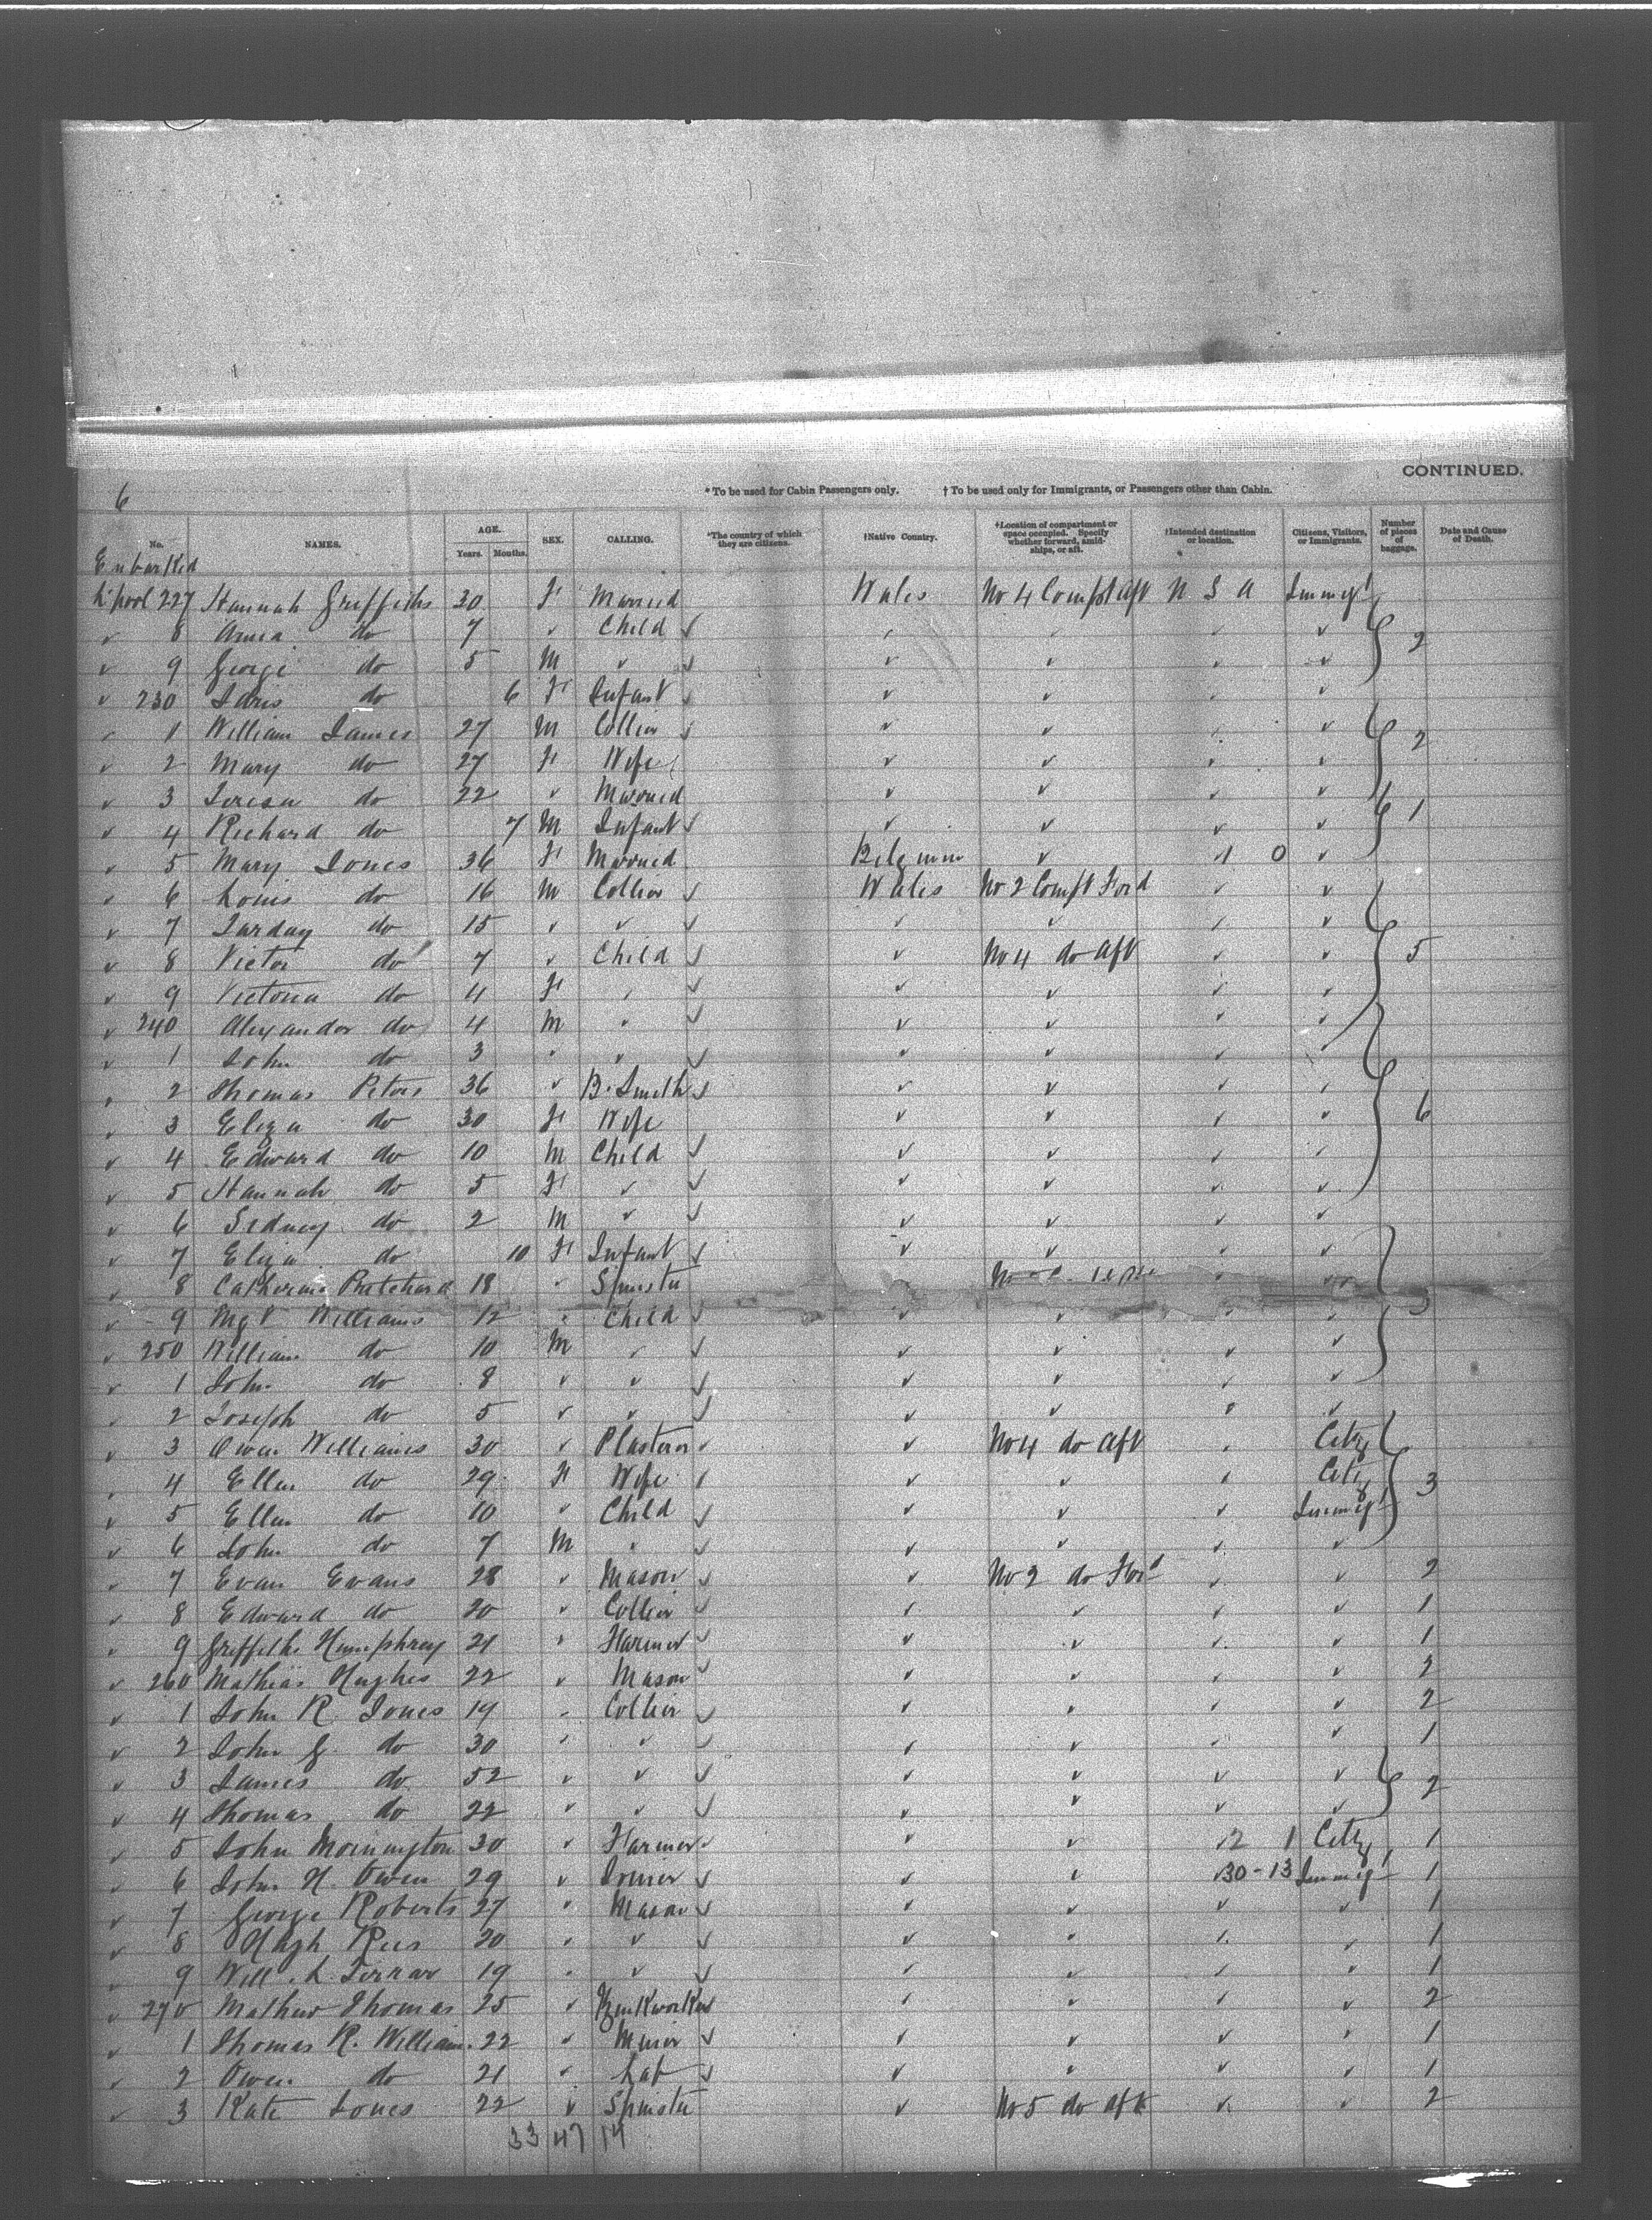 CONTINUED.
6
*To be used for Cabin Passengers only. †To be used only for Immigrants, or Passengers other than Cabin.
No. NAMES. AGE. Years. Months. SEX. CALLING. *The country of which they are citizens. †Native Country. †Location of compartment or space occupied. Specify whether forward, amidships, or aft. †Intended destination or location. Citizens, Visitors, or Immigrants. Number of pieces of baggage. Date and Cause of Death.
Embarked
L'pool 227 Hannah Griffiths 30 F Married Wales No 4 Compt Aft U S A Immigt
8 do 7 Child 2
9 George do 5 M
230 do 6 F Infant
1 William James 27 M Collier
2 Mary do 27 F Wife 2
3 Teresa do 22 Married
4 Richard do 7 M Infant 1
5 Mary Jones 36 F Married Belgium 0
6 Louis do 16 M Collier Wales No 2 Compt Ford
7 do 15
8 Victor do 7 Child No 4 do Aft 5
9 Victoria do 4 F
240 Alexander do 4 M
1 John do 3
2 Thomas Peters 36 B. Smith
3 Eliza do 30 F Wife 6
4 Edward do 10 M Child
5 Hannah do 5 F
6 Sidney do 2 M
7 Eliza do 10 F Infant
8 Catherine Pritchard 18 Spinster
9 Mgt Williams 12 Child
250 William do 10 M
1 John do 8
2 Joseph do 5
3 Owen Williams 30 Plasterer No 4 do Aft City
4 Ellen do 29 F Wife City 3
5 Ellen do 10 Child Immigt
6 John do 7 M
7 Evan Evans 28 Mason No 2 do Ford 2
8 Edward do 20 Collier 1
9 Griffiths Humphrey 21 Farmer 1
260 Mathias Hughes 22 Mason 2
1 John R. Jones 19 Collier 2
2 John G. do 30 1
3 James do 52 2
4 Thomas do 22
5 John Mornington 30 Farmer 2 1 City 1
6 John H. Owen 29 Joiner 30-13 Immigt 1
7 George Roberts 27 Mason 1
8 Hugh Rees 20 1
9 Will. L. 19 1
270 Mathew Thomas 25 2
1 Thomas R. William. 22 Miner 1
2 Owen do 21 Lab 1
3 Kate Jones 22 Spinster No 5 do Aft 2
33 47 14